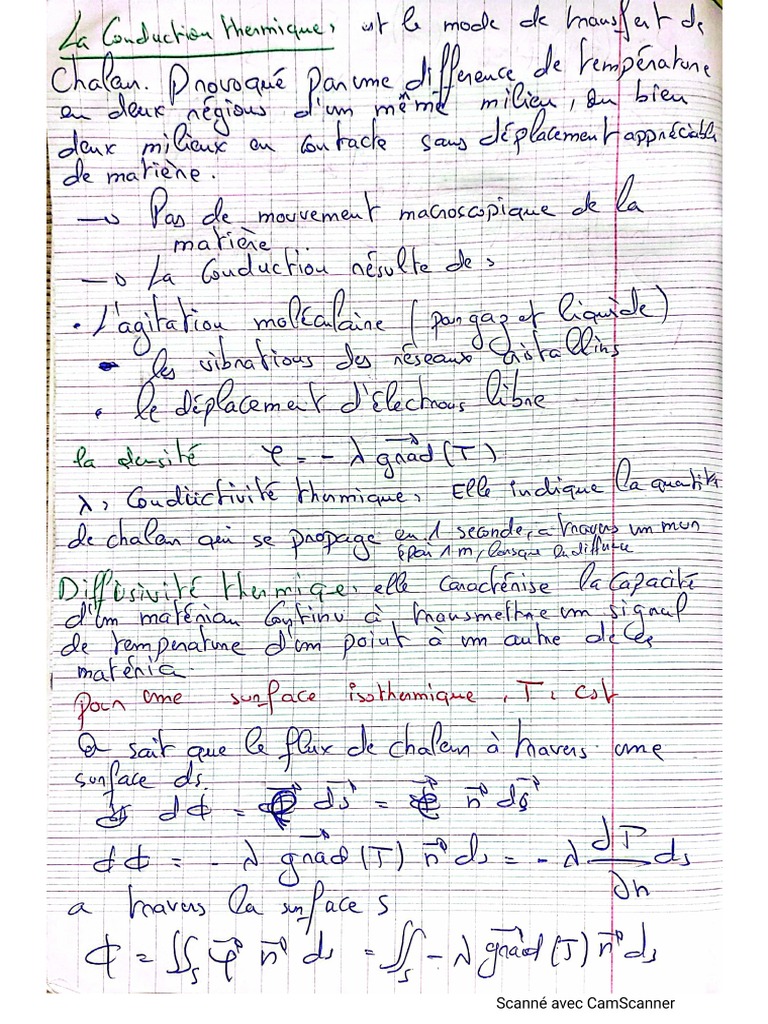 La Conduction thermique, est le mode de transfert de
Chaleur. Provoqué par une différence de température
en deux régions d'un même milieu, ou bien
deux milieux en contacte sans déplacement appréciable
de matière.
→ Pas de mouvement macroscopique de la
matière.
→ La Conduction résulte de,
• L'agitation moléculaire (par gaz et liquide)
• les vibrations des réseaux cistallins
• le déplacement d'électrons libre
la densité φ = - λ grad (T)
λ, Conductivité thermique, Elle indique la quantité
de chaleur qui se propage en 1 seconde, a travers un mur
épar 1 m, lorsque
Diffusivité thermique, elle caractérise la capacité
d'un matériau continu à transmettre un signal
de temperature d'un point à un autre de ce
matéria.
pour une surface isothermique, T, cst
O sait que le flux de chaleur à travers une
surface ds.
dϕ = φ ds = φ n ds
dϕ = - λ grad (T) n ds = - λ ∂T/∂n ds
a travers la surface s
ϕ = ∬s φ n ds = ∬s - λ grad (T) n ds
Scanné avec CamScanner